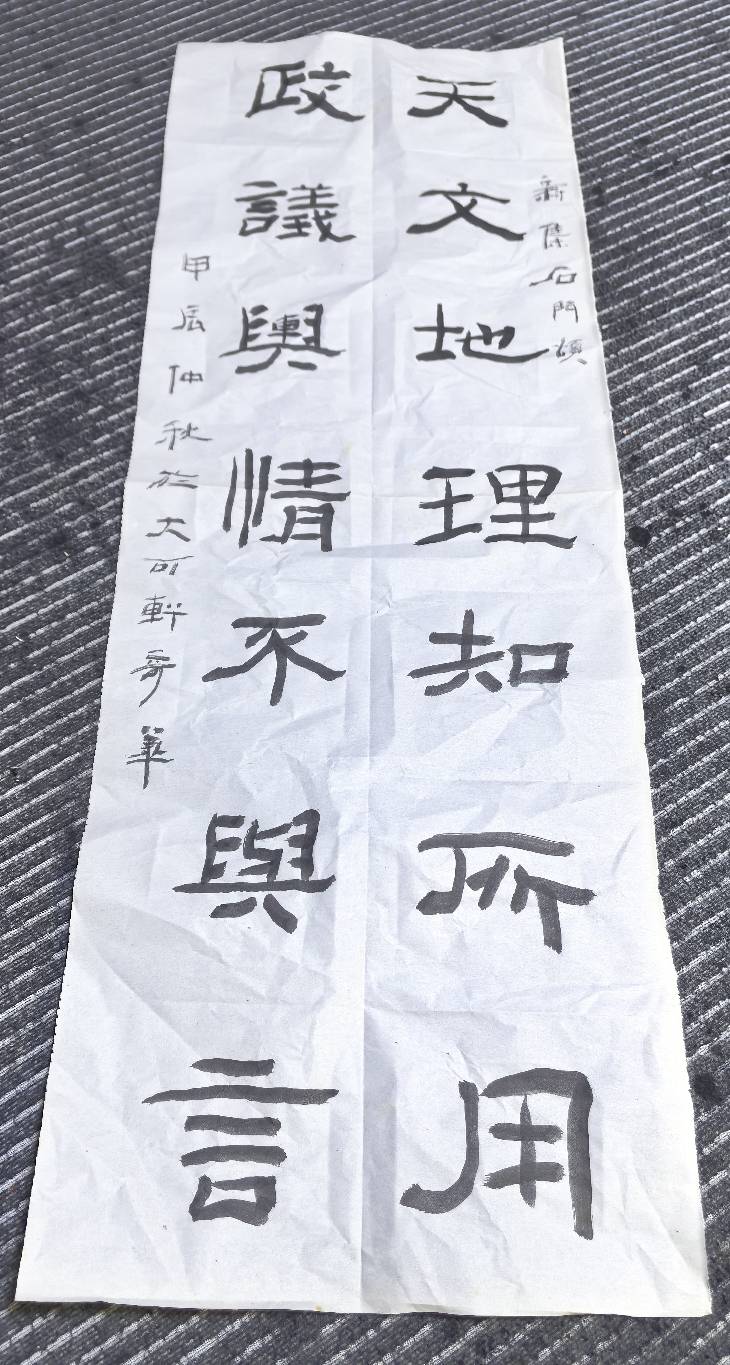 新集石門頌
天文地理知所用
政議輿情不與言
甲辰仲秋於大可軒奇華